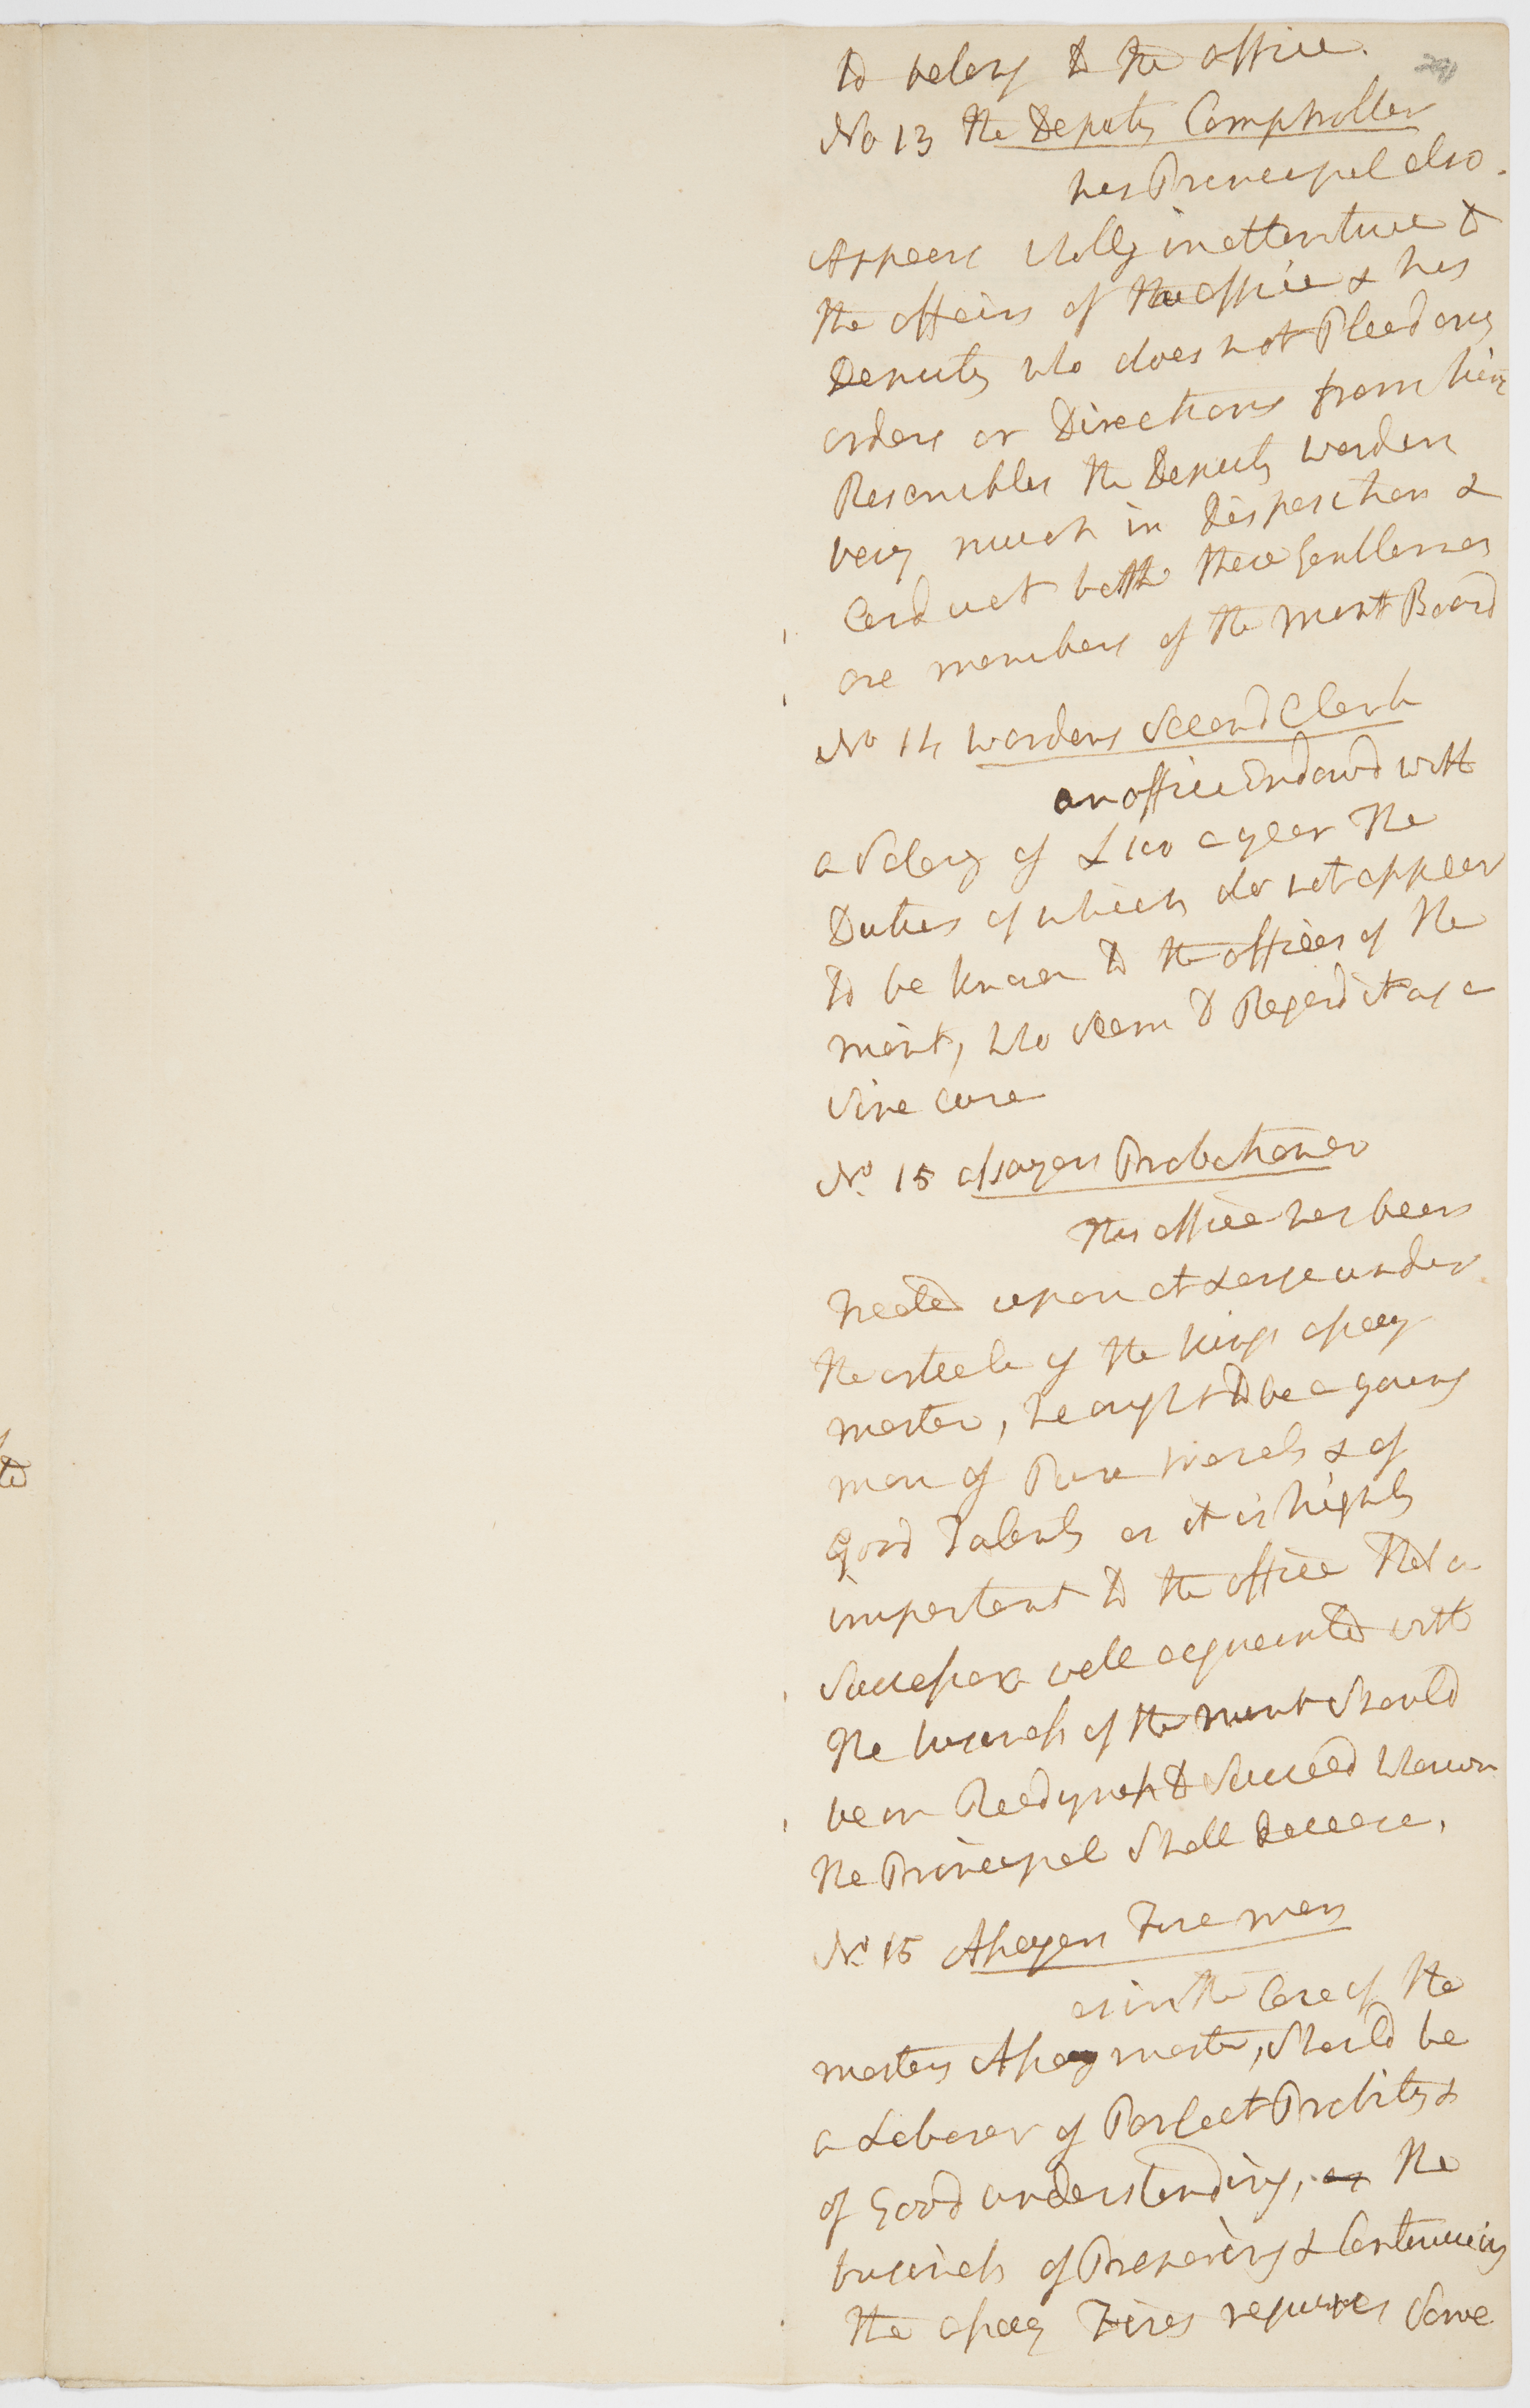 to belong to the office.
No 13 the Deputy Comptroller
his Principal also
Appears wholly inattentive to
the affairs of the office & his
Deputy who does not Plead any
orders or Directions from him
Resembles the Deputy warden
very much in disposition &
Conduct both these Gentlemen
are members of the mint Board
No 14 wardens Second Clerk
an office Endowd with
a Salary of £100 a year The
Duties of which do not appear
to be known to the officers of the
mint, who seem to Regard it as a
Sine cure
No. 15 Assayers Probationer
This office has been
treated upon at Large under
the article of the kings assay
master, he ought to be a young
man of Pure morals & of
Good Talents as it is highly
important to the office that a
Successor well acquainted with
the business of the mint Should
be in Readyness to Succeed when
the Principal Shall decease,
No. 15 Assayers Fire man
as in the Case of the
masters Assay master, Should be
a Laborer of Perfect Probity &
of Good understanding, as the
business of Preparing & Continuing
the assay Fires requires Some